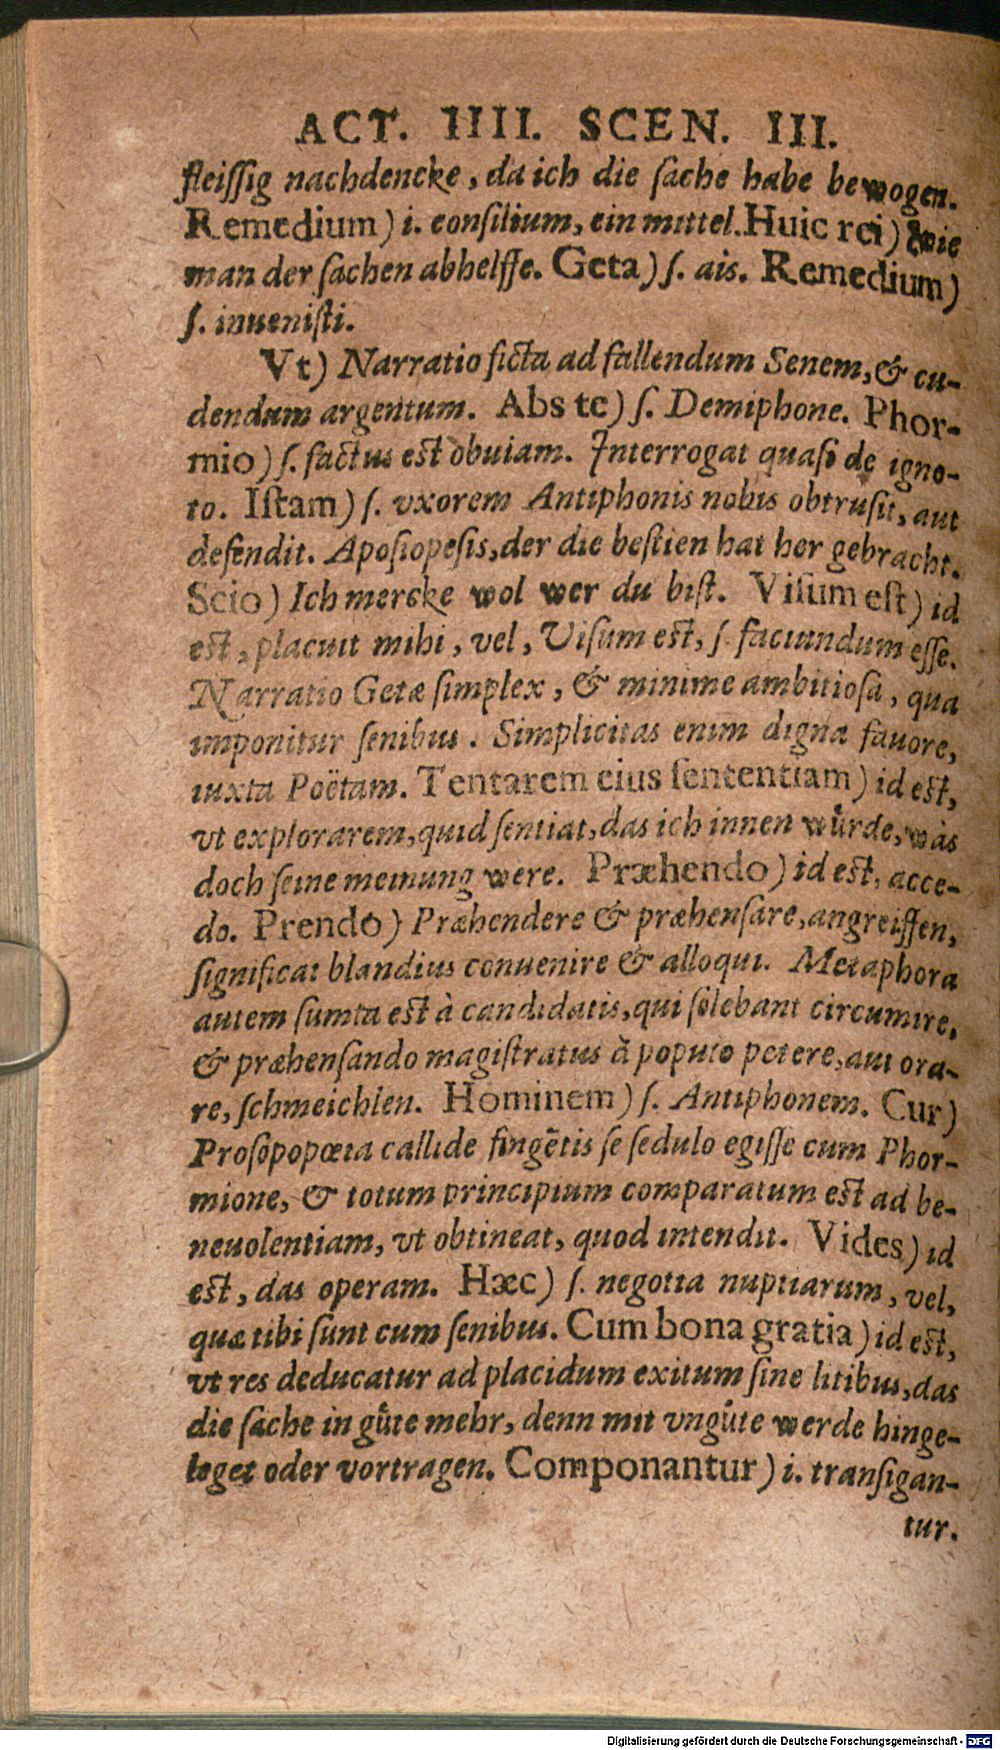 ACT. IIII. SCEN. III.
fleiſſig nachdencke, da ich die ſache habe bewogen.
Remedium) i. conſilium, ein mittel. Huic rei) wie
man der ſachen abhelffe. Geta) ſ. ais. Remedium)
ſ. inueniſti.
Vt) Narratio ficta ad fallendum Senem, & cu-
dendum argentum. Abs te) ſ. Demiphone. Phor-
mio) ſ. factus est obuiam. Interrogat quaſi de igno-
to. Iſtam) ſ. vxorem Antiphonis nobis obtruſit, aut
defendit. Apoſiopeſis, der die beſtien hat her gebracht.
Scio) Ich mercke wol wer du biſt. Viſum eſt) id
est, placuit mihi, vel, Viſum est, ſ. faciundum eſſe.
Narratio Getæ ſimplex, & minime ambitioſa, qua
imponitur ſenibus. Simplicitas enim digna fauore,
iuxta Poëtam. Tentarem eius ſententiam) id est,
vt explorarem, quid ſentiat, das ich innen wuͤrde, was
doch ſeine meinung were. Præhendo) id est, acce-
do. Prendo) Præhendere & præhenſare, angreiffen,
ſignificat blandius conuenire & alloqui. Metaphora
autem ſumta est à candidatis, qui ſolebant circumire,
& præhenſando magiſtratus à populo petere, aut ora-
re, ſchmeichlen. Hominem) ſ. Antiphonem. Cur)
Proſopopœia callide fingẽtis ſe ſedulo egiſſe cum Phor-
mione, & totum principium comparatum est ad be-
neuolentiam, vt obtineat, quod intendit. Vides) id
est, das operam. Hæc) ſ. negotia nuptiarum, vel,
quæ tibi ſunt cum ſenibus. Cum bona gratia) id est,
vt res deducatur ad placidum exitum ſine litibus, das
die ſache in guͤte mehr, denn mit vnguͤte werde hinge-
leget oder vortragen. Componantur) i. tranſigan-
tur.
Digitalisierung gefördert durch die Deutsche Forschungsgemeinschaft - DFG